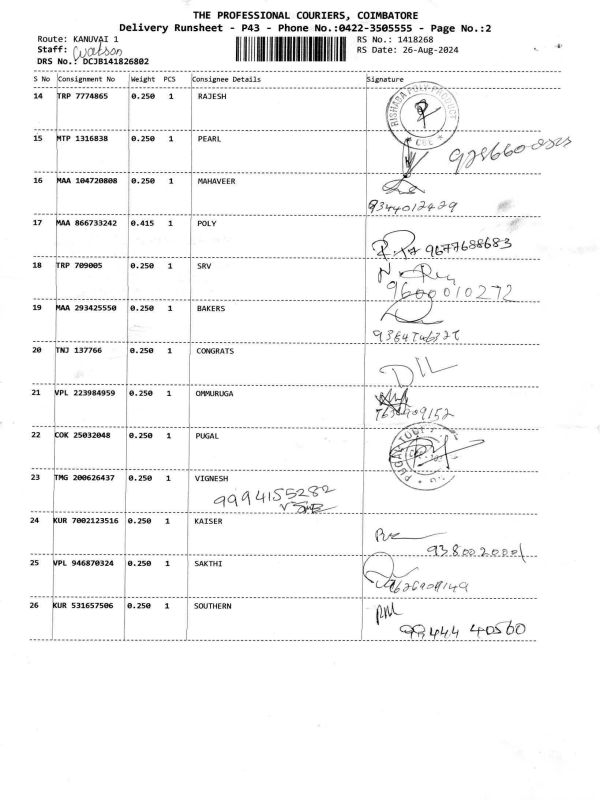 THE PROFESSIONAL COURIERS, COIMBATORE
Delivery Runsheet - P43 - Phone No.:0422-3505555 - Page No.:2
Route: KANUVAI 1 RS No.: 1418268
Staff: Watson RS Date: 26-Aug-2024
DRS No.: DCJB141826802
S No Consignment No Weight PCS Consignee Details Signature
14 TRP 7774865 0.250 1 RAJESH
RISHABA POLY PRODUCT
CBE
15 MTP 1316838 0.250 1 PEARL
16 MAA 104720808 0.250 1 MAHAVEER
9344012429
17 MAA 866733242 0.415 1 POLY
9677688683
18 TRP 709005 0.250 1 SRV
9600010272
19 MAA 293425550 0.250 1 BAKERS
20 TNJ 137766 0.250 1 CONGRATS
DIL
21 VPL 223984959 0.250 1 OMMURUGA
22 COK 25032048 0.250 1 PUGAL
PUGAL
23 TMG 200626437 0.250 1 VIGNESH
9994155282
24 KUR 7002123516 0.250 1 KAISER
9380020001
25 VPL 946870324 0.250 1 SAKTHI
9626909149
26 KUR 531657506 0.250 1 SOUTHERN
RM
99444 40560